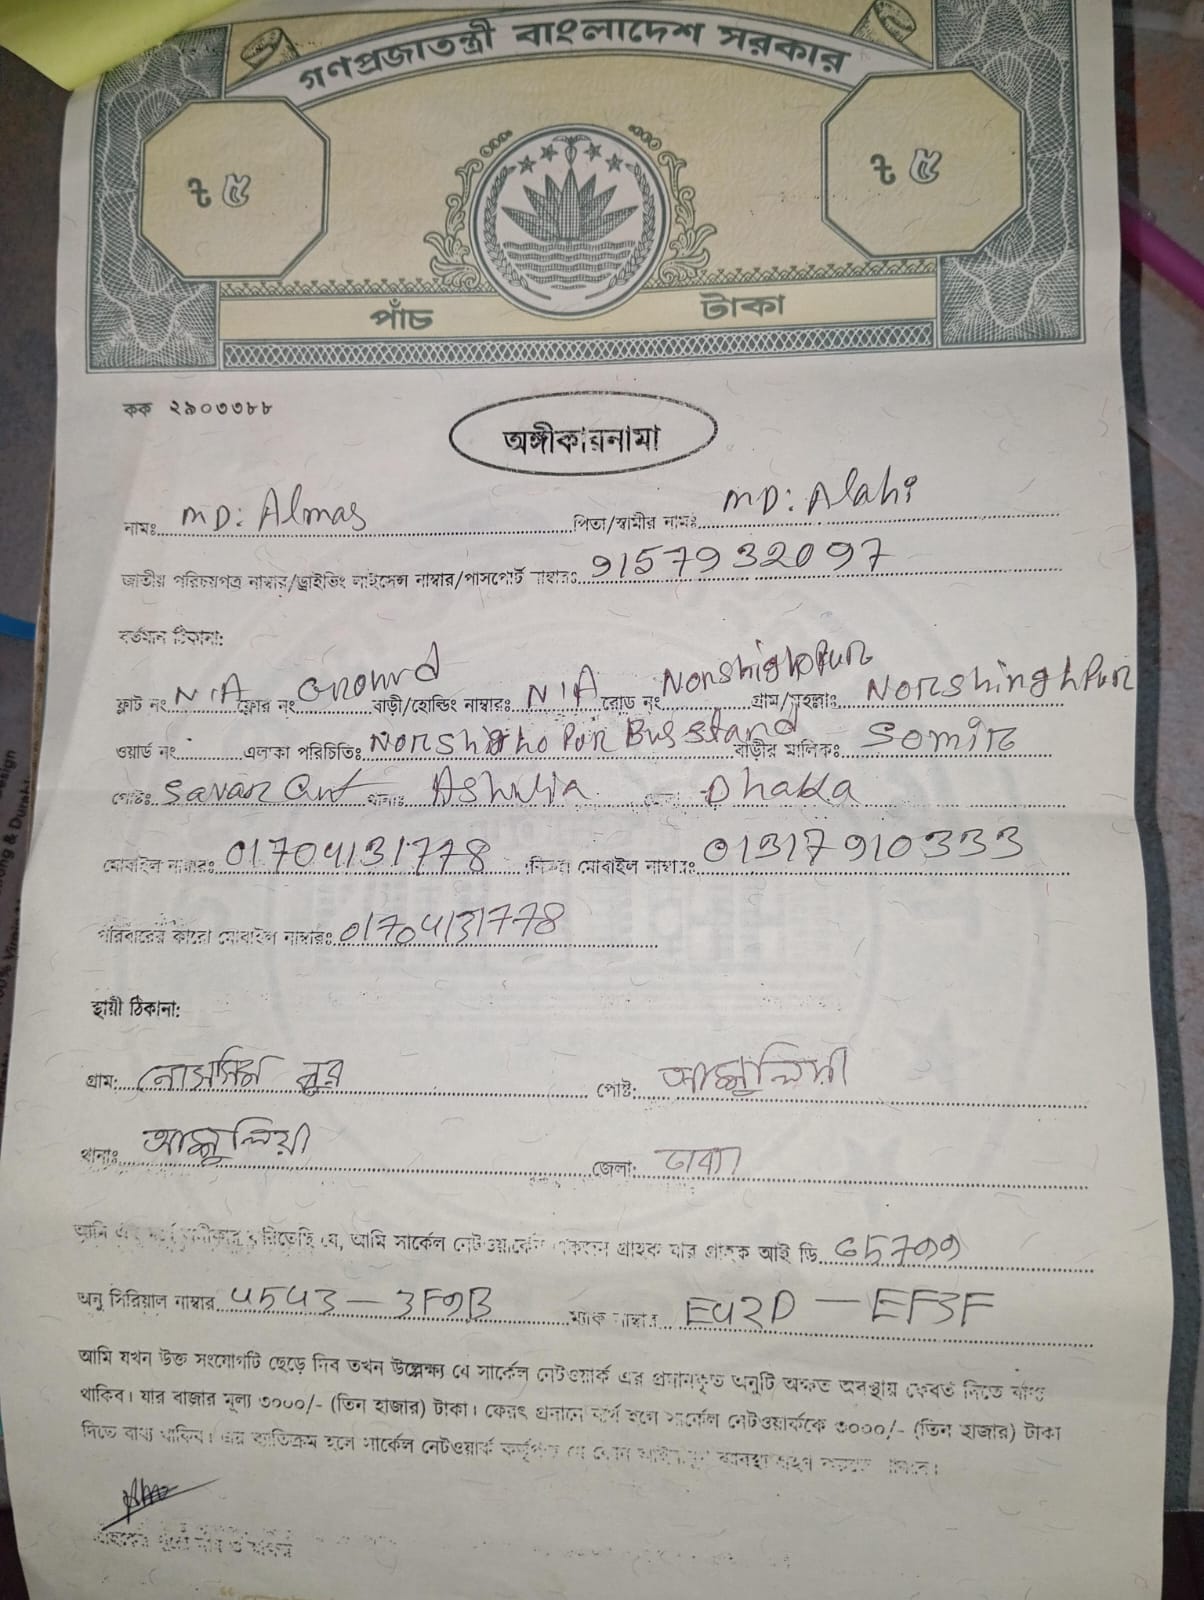 গণপ্রজাতন্ত্রী বাংলাদেশ সরকার
৳ ৫
৳ ৫
পাঁচ টাকা
কক ২৯০৩৩৮৮
অঙ্গীকারনামা
নামঃ MD: Almas পিতা/স্বামীর নামঃ MD: Alahi
জাতীয় পরিচয়পত্র নাম্বার/ড্রাইভিং লাইসেন্স নাম্বার/পাসপোর্ট নাম্বারঃ 9157932097
বর্তমান ঠিকানা:
ফ্লাট নং N/A ফ্লোর নং Ground বাড়ী/হোল্ডিং নাম্বারঃ N/A রোড নং Norshighpur গ্রাম/মহল্লাঃ Norshinghpur
ওয়ার্ড নং এলাকা পরিচিতিঃ Bus stand বাড়ীর মালিকঃ Somir
পোষ্টঃ Savar থানাঃ Ashulia Dhaka
মোবাইল নাম্বারঃ 01704131778 মোবাইল নাম্বারঃ 01317910333
পরিবারের কারো মোবাইল নাম্বারঃ 01704131778
স্থায়ী ঠিকানা:
গ্রাম: পোষ্ট:
থানাঃ জেলা: ঢাকা
আমি এই মর্মে অঙ্গীকার করিতেছি যে, আমি সার্কেল নেটওয়ার্কের একজন গ্রাহক যার গ্রাহক আই ডি 65799
অনু সিরিয়াল নাম্বার 4543-3F9B ম্যাক নাম্বার E42D-EF3F
আমি যখন উক্ত সংযোগটি ছেড়ে দিব তখন উল্লেক্ষ্য যে সার্কেল নেটওয়ার্ক এর প্রদানকৃত অনুটি অক্ষত অবস্থায় ফেরত দিতে বাধ্য
থাকিব। যার বাজার মূল্য ৩০০০/- (তিন হাজার) টাকা। ফেরৎ প্রদানে ব্যর্থ হলে সার্কেল নেটওয়ার্ককে ৩০০০/- (তিন হাজার) টাকা
দিতে বাধ্য থাকিব। এর ব্যতিক্রম হলে সার্কেল নেটওয়ার্ক কর্তৃপক্ষ যে কোন ব্যবস্থা গ্রহণ